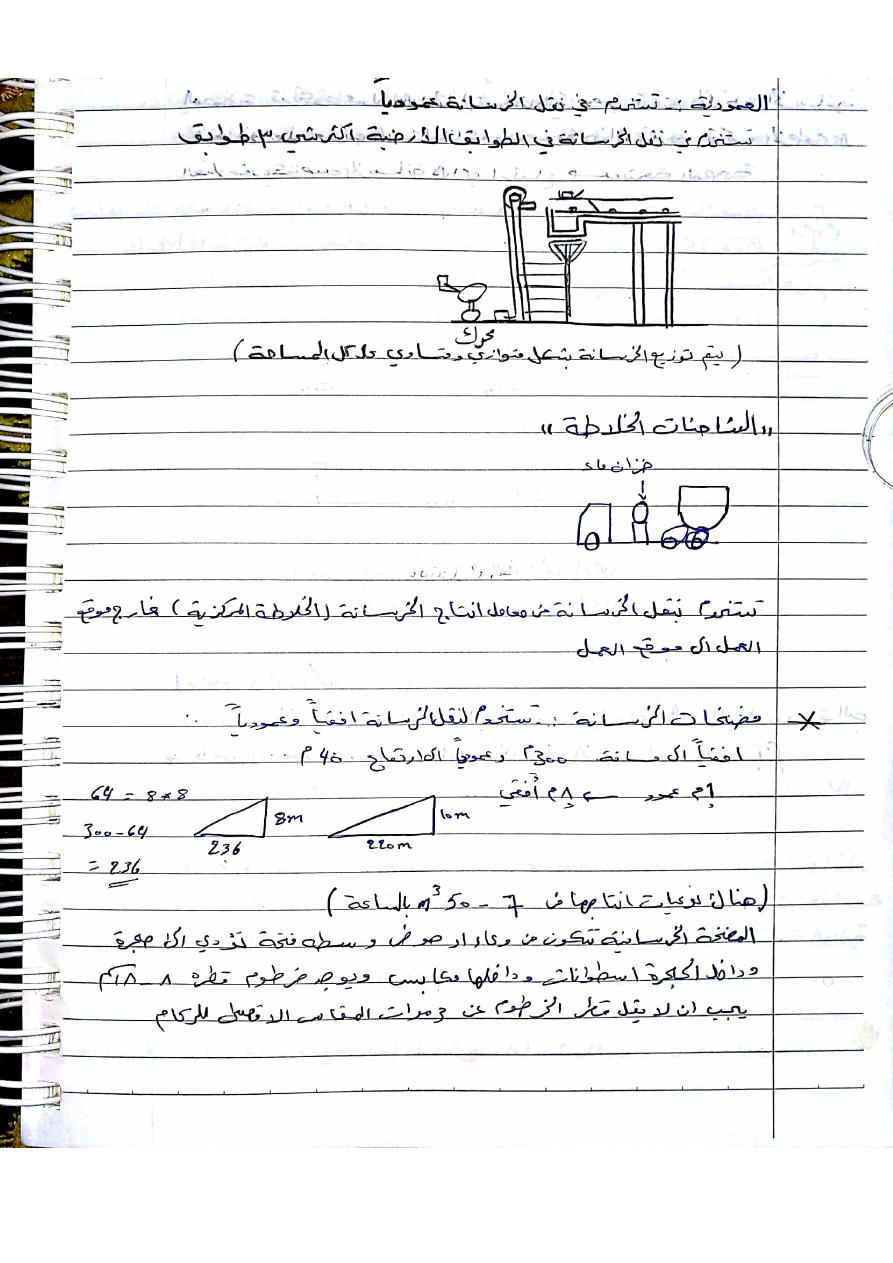 العمودية :- تستخدم في نقل الخرسانة عمودياً
تستخدم في نقل الخرسانة في الطوابق الأرضية اكثر شي ٣ طوابق
محرك
( يتم توزيع الخرسانة بشكل متوازي ومتساوي على كل المساحة )
"الشاحنات الخلاطة"
خزان ماء
تستخدم بنقل الخرسانة من معامل انتاج الخرسانة (الخلاطة المركزية) خارج موقع
العمل الى موقع العمل
مضخات الخرسانة :- تستخدم لنقل الخرسانة افقياً وعمودياً
افقياً الى مسافة 300م وعمودياً الى ارتفاع 40 م
1م عمود ← 8م أفقي
64 = 8*8
300-64
= 236
8m
236
10m
220m
(هناك نوعيات انتاجها من 7 - 50 m³ بالساعة)
المضخة الخرسانية تتكون من وعاء او حوض وسطه فتحة تؤدي الى حجرة
وداخل الحجرة اسطوانات وداخلها مكابس ويوجد خرطوم قطره ٨ - ١٨
يجب ان لا يقل قطر الخرطوم عن ٣ مرات المقاس الاقصى للركام